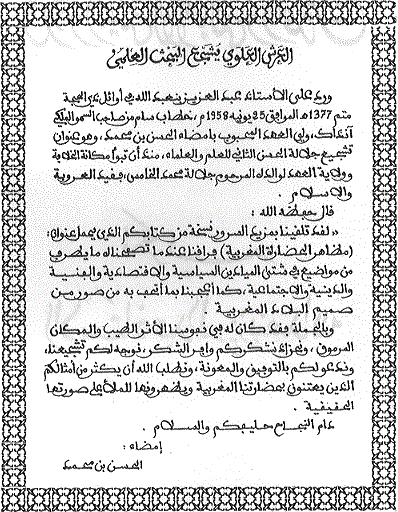 العرش العلوي يشجع البحث العلمي
ورد على الأستاذ عبد العزيز بنعبد الله في أوائل ذي الحجة
متم 1377هـ الموافق 25 يونيه 1958م، خطاب سام من صاحب السمو الملكي
آنذاك، ولي العهد المحبوب بإمضاء الحسن بن محمد، وهو عنوان
تشجيع جلالة الحسن الثاني للعلم والعلماء، منذ أن تبوأ مكانة الخلافة
وولاية العهد لوالده المرحوم جلالة محمد الخامس، فقيد العروبة
والإسلام.
قال حفظه الله:
« لقد تلقينا بمزيد السرور نسخة من كتابكم الذي يحمل عنوان:
(مظاهر الحضارة المغربية) فراقنا عندما تصفحناه ما يطرق
من مواضيع في شتى الميادين السياسية والاقتصادية والفنية
والدينية والاجتماعية، كما أعجبنا بما أتحف به من صور من
صميم البلاد المغربية.
وبالجملة فقد كان له في نفوسنا الأثر الطيب والمكان
المرموق، وبجزاء نشكركم وافر الشكر، نوجه لكم تشجيعنا،
وندعو لكم بالتوفيق والمعونة، ونطلب الله أن يكثر من أمثالكم
الذين يعتنون بحضارتنا المغربية ويظهرونها للملأ على صورتها
الحقيقية.
دام النجاح حليفكم والسلام.
إمضاء:
الحسن بن محمد